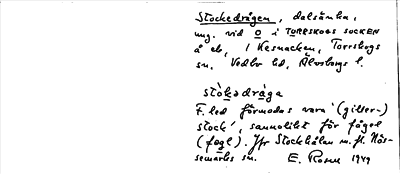 Stockedrågen, dalsänka,
ung. vid O i TORRSKOGS SOCKEN
å ek, / Kesnacken, Torrskogs
sn. Vedbo hd, Älvsborgs l.
stòkədrå̀ga
F. led förmodas vara '(giller-)
stock', sannolikt för fågel
(fogl). Jfr Stockhålan m. fl. Nös-
semarks sn. E. Rosen 1949